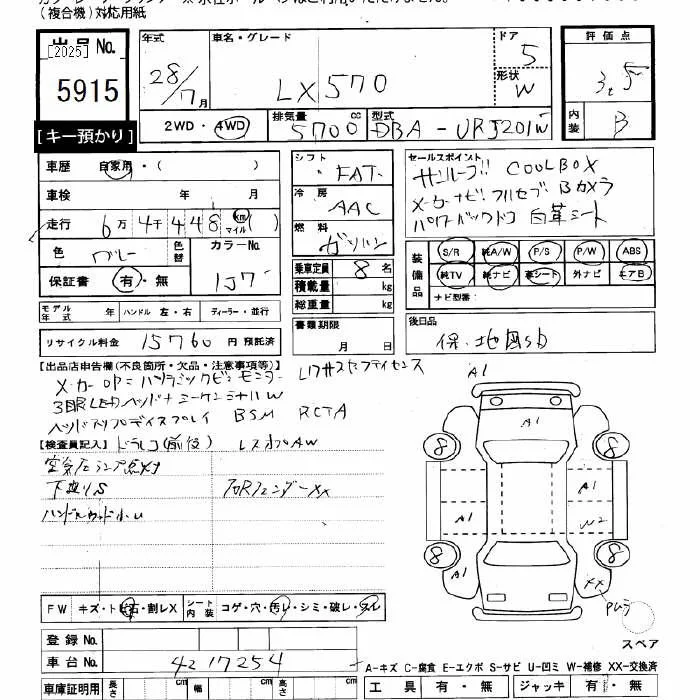 (複合機)対応用紙
出品No.
[2025]
5915
[キー預かり]
年式
28/7月
車名・グレード
LX570
ドア
5
形状
W
評価点
3.5
内装
B
2WD・4WD
排気量
5700 cc
型式
DBA-URJ201W
車歴 自家用・( )
車検 年 月
走行 6万4千448 km マイル ( )
色 グレー 色替 カラーNo.
1J7
保証書 有・無
シフト
FAT
冷房
AAC
燃料
ガソリン
乗車定員 8名
積載量 kg
総重量 kg
セールスポイント
サンルーフ!! COOLBOX
メーカーナビ フルセグ Bカメラ
パワーバックドア 白革シート
装備品
S/R 純A/W P/S P/W ABS
純TV 純ナビ 革シート 外ナビ エアB
ナビ型番:
モデル年式 年 ハンドル 左・右 ディーラー・並行
リサイクル料金 15760 円 預託済
書類期限
月 日
後日品
保、地図SD
[出品店申告欄(不良箇所・欠品・注意事項等)]
メーカーOP=パノラミックビューモニター
3眼LEDヘッド
ヘッドアップディスプレイ BSM RCTA
[検査員記入] ドラレコ(前後)
下廻りS
右RフェンダーXX
A1
A1
8
8
A1
A1
W2
8
8
A1
XX
スペア
FW キズ・トビ石・割レX シート内装 コゲ・穴・汚レ・シミ・破レ・スレ
登録No.
車台No. 4217254
A-キズ C-腐食 E-エクボ S-サビ U-凹ミ W-補修 XX-交換済
車庫証明用 長さ cm 幅 cm 高さ cm
工具 有・無 ジャッキ 有・無